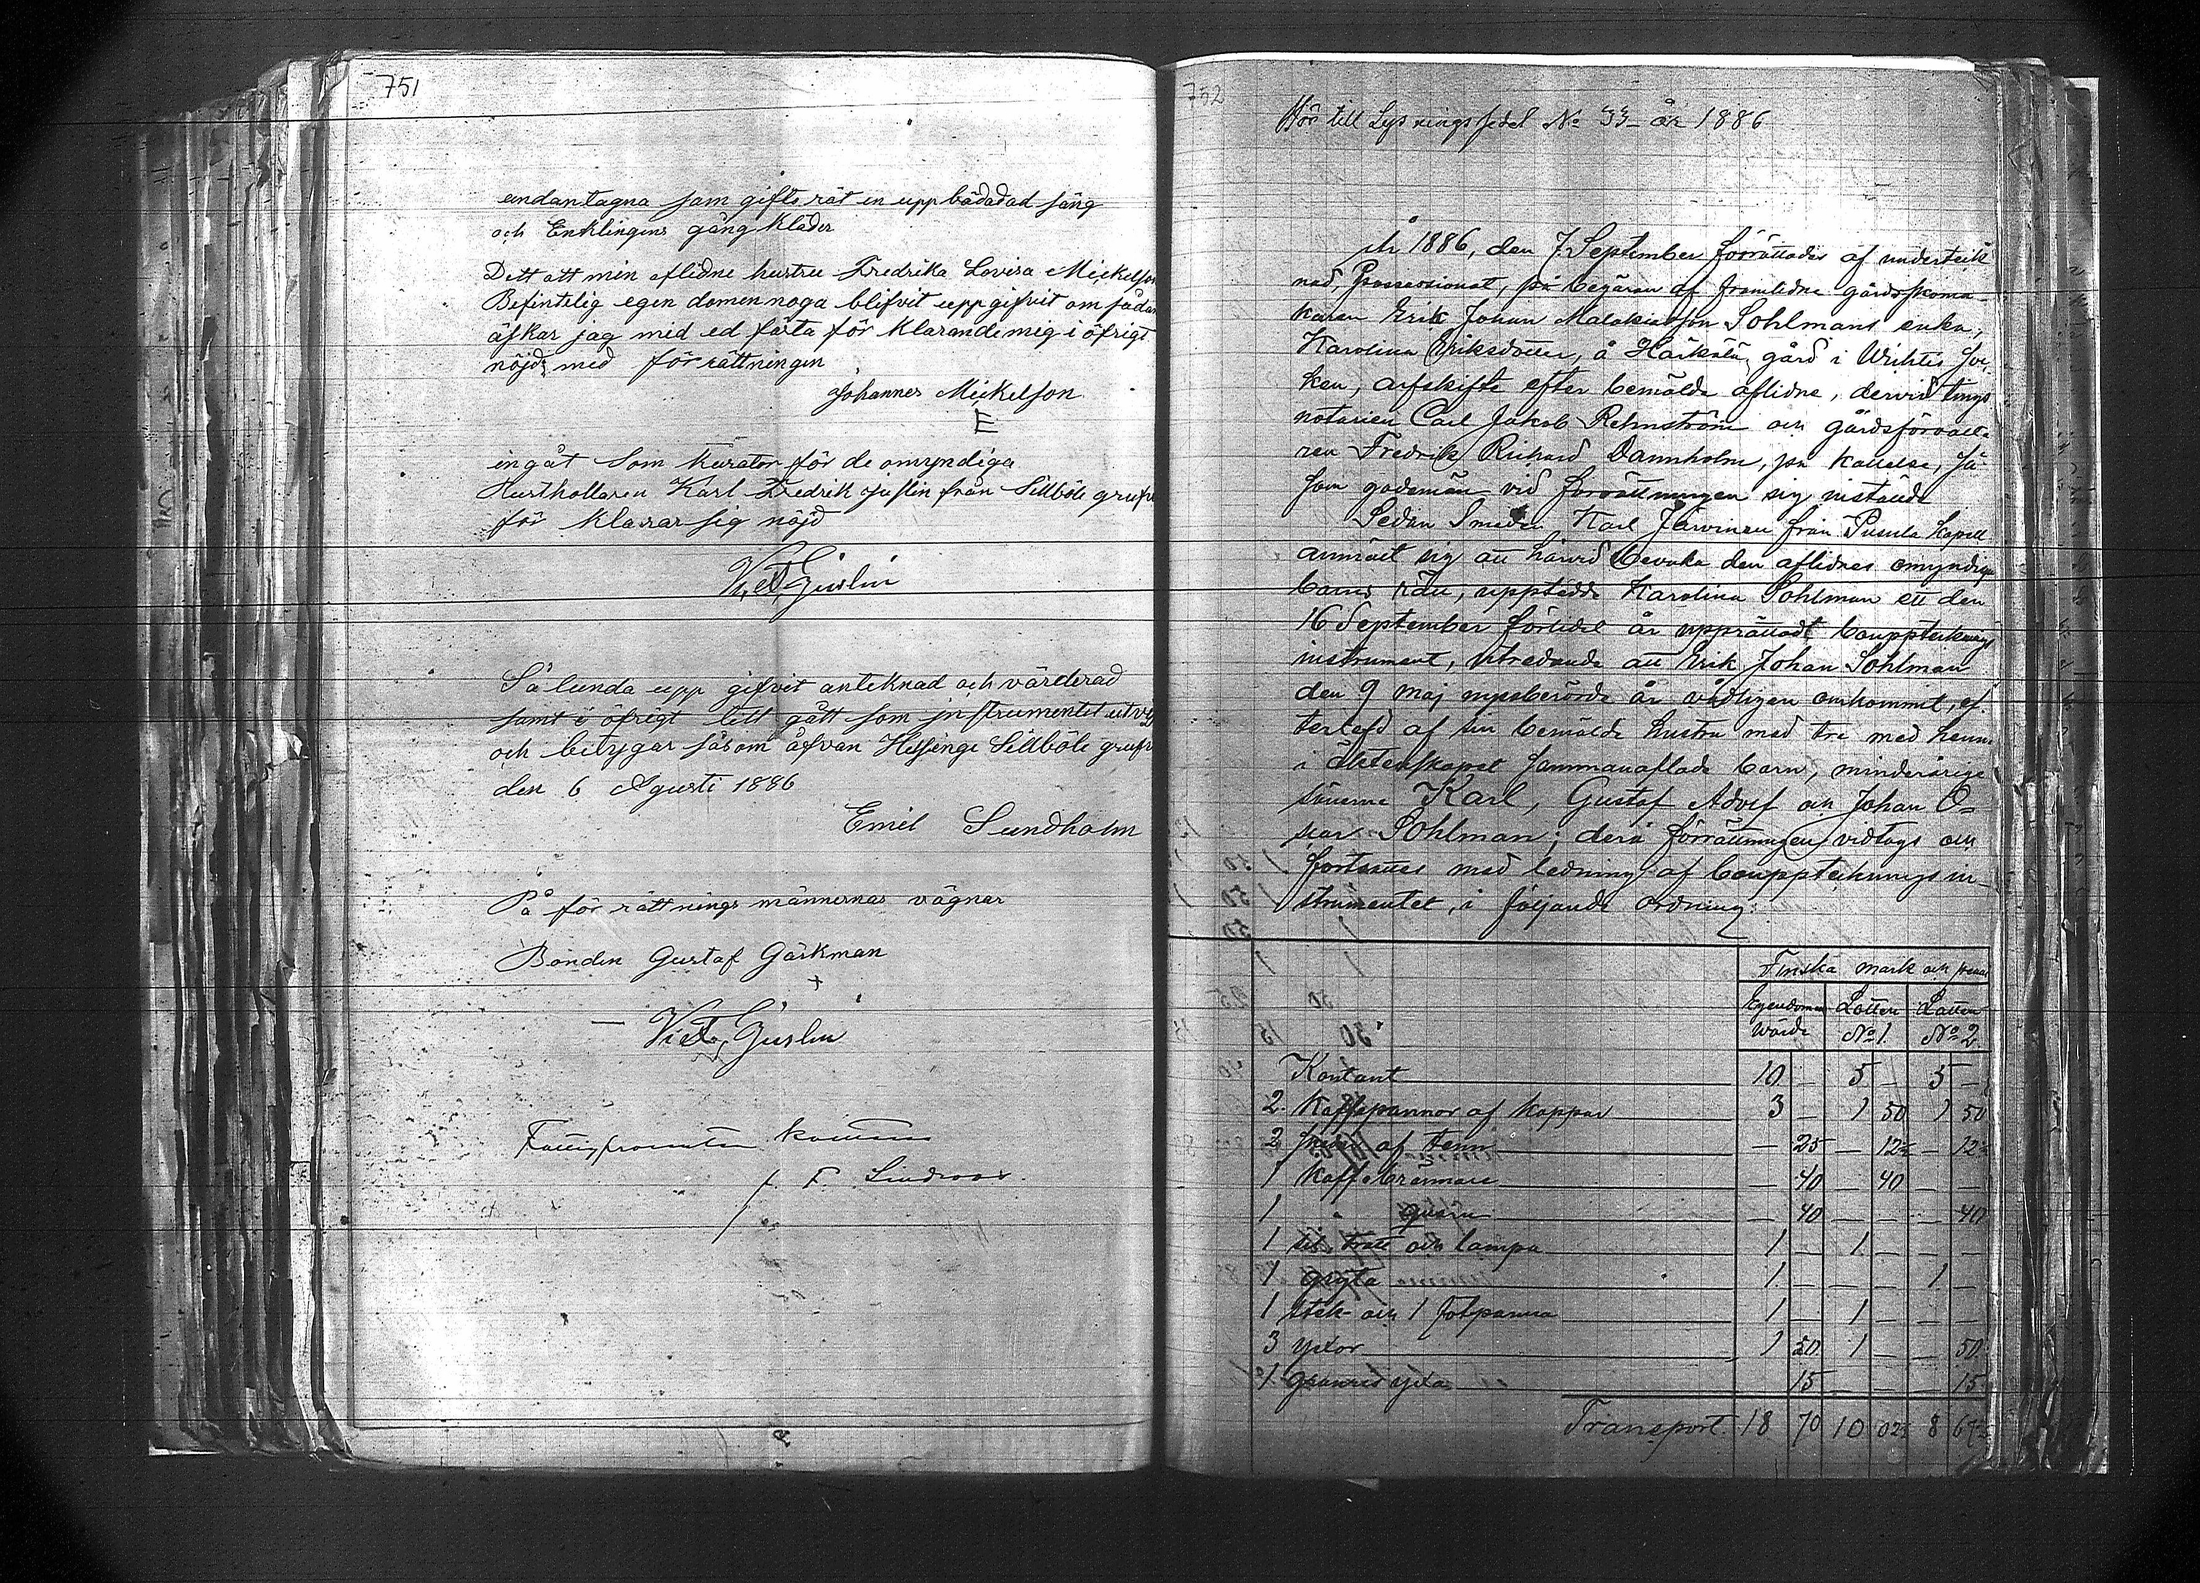 751
undantagna som giftorät en uppbäddad säng
och Enklingens gång kläder
Dett att min aflidne hustru Fredrika Lovisa Mickelson
Befintelig egen domen noga blifvit uppgifvit om sådan
äskar jag med ed fästa för klarandemig i öfrigt
nöjd med förrättningen
Johannes Mickelson
E
ingåt Som kurator för de omyndiga
Husthollaren Karl Fredrik Juslin från Sillböle grufv
för klarar sig nöjd
Så lunda upp gifvit anteknad och värderad
samt i öfrigt till gått som instrumentet utvis
och betygar såsom åfvan Helsinge Sillböle grufv
den 6 Agusti 1886
Emil Sundholm
På för rättnings männernas vägnar
Bonden Gustaf Gärkman
+
F. Lindroos
752
Hör till Lysningssedel No 33 år 1886
År 1886, den 7 September förrättades af underteck
nad, Possessionat, på begäran af framlidne gårdsskoma-
karen Erik Johan Malakiasson Sohlmans enka,
Karolina Eriksdotter, å Härkälä gård i Wichtis soc-
ken, arfskifte efter bemälde aflidne, dervid tings
notarien Carl Jakob Rehnström och gårdsförvalta
ren Fredrik Richard Dannholm, på kallelse, så
som godemän vid förrättningen sig instälde
Sedan Smeden Karl Järvinen från Pusula kapell
anmält sig att härvid bevaka den aflidnes omyndiga
barns rätt, upptedde Karolina Sohlman ett den
16 September förlidet år upprättadt bouppteknings
instrument, utredande att Erik Johan Sohlman
den 9 maj nyssberörde år vådligen omkommit, ef-
terlefd af sin bemälde hustru med tre med henne
i äktenskapet sammanaflade barn, minderårige
sönerne Karl, Gustaf Adolf och Johan O-
skar Sohlman; derå förrättningen vidtogs och
fortsattes med ledning af bouppteknings in-
strumentet, i följande ordning:
Finska mark och penni
Egendomens Lotten Lotten
värde No 1. No 2
Kontant 10 — 5 — 5 —
2 Kaffepannor af koppar 3 — 1 50 1 50
2 af tenn — 25 — 12½ — 12½
1 kaffebrännare — 40 — 40 — —
1 " qvarn — 40 — — — 40
1 sil, tratt och lampa 1 — 1 — — —
1 gryta 1 — — — 1 —
1 stek- och 1 fotpanna 1 — 1 — — —
3 yxor 1 50 1 — — 50
1 yxa — 15 — — — 15
Transport 18 70 10 02½ 8 67½